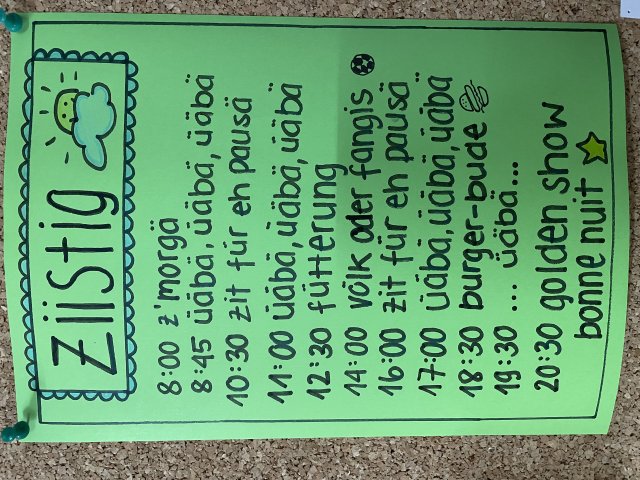 Ziistig
8:00 z'morgä
8:45 üäbä, üäbä, üäbä
10:30 zit für eh pausä
11:00 üäbä, üäbä, üäbä
12:30 fütterung
14:00 völk oder fangis
16:00 zit für eh pausä
17:00 üäbä, üäbä, üäbä
18:30 burger-bude
19:30 ... üäbä...
20:30 golden show
bonne nuit